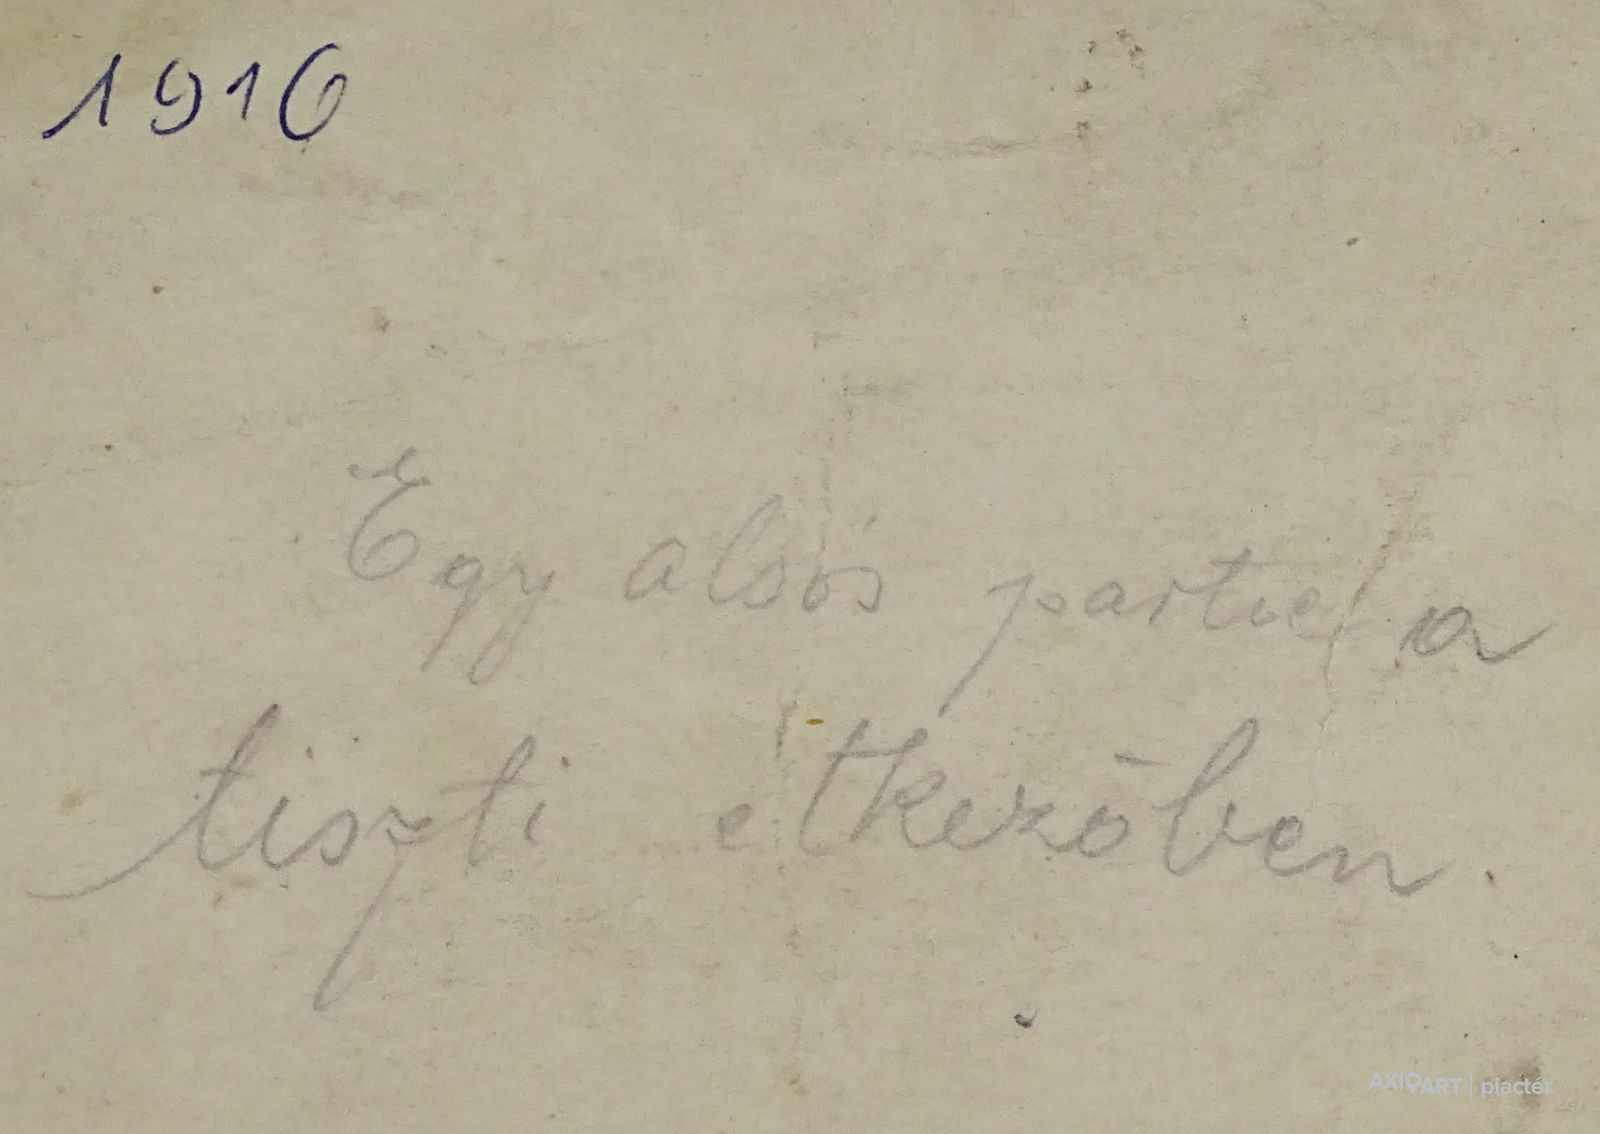 1916
Egy alsós partie a
tiszti etkezőben.
AXIOART | piactér